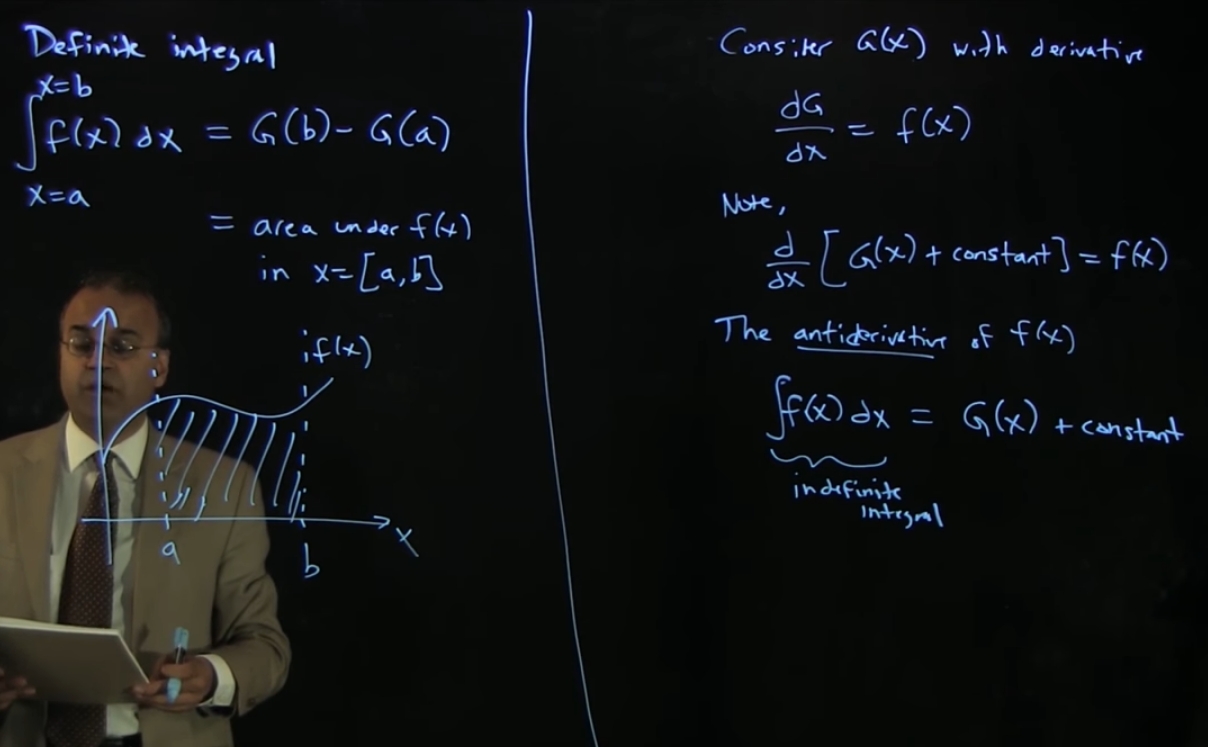 Definite integral
x=b
∫f(x) dx = G(b) - G(a)
x=a
= area under f(x)
in x=[a,b]
f(x)
a
b
x
Consider G(x) with derivative
dG/dx = f(x)
Note,
d/dx [G(x) + constant] = f(x)
The antiderivative of f(x)
∫f(x) dx = G(x) + constant
indefinite
integral